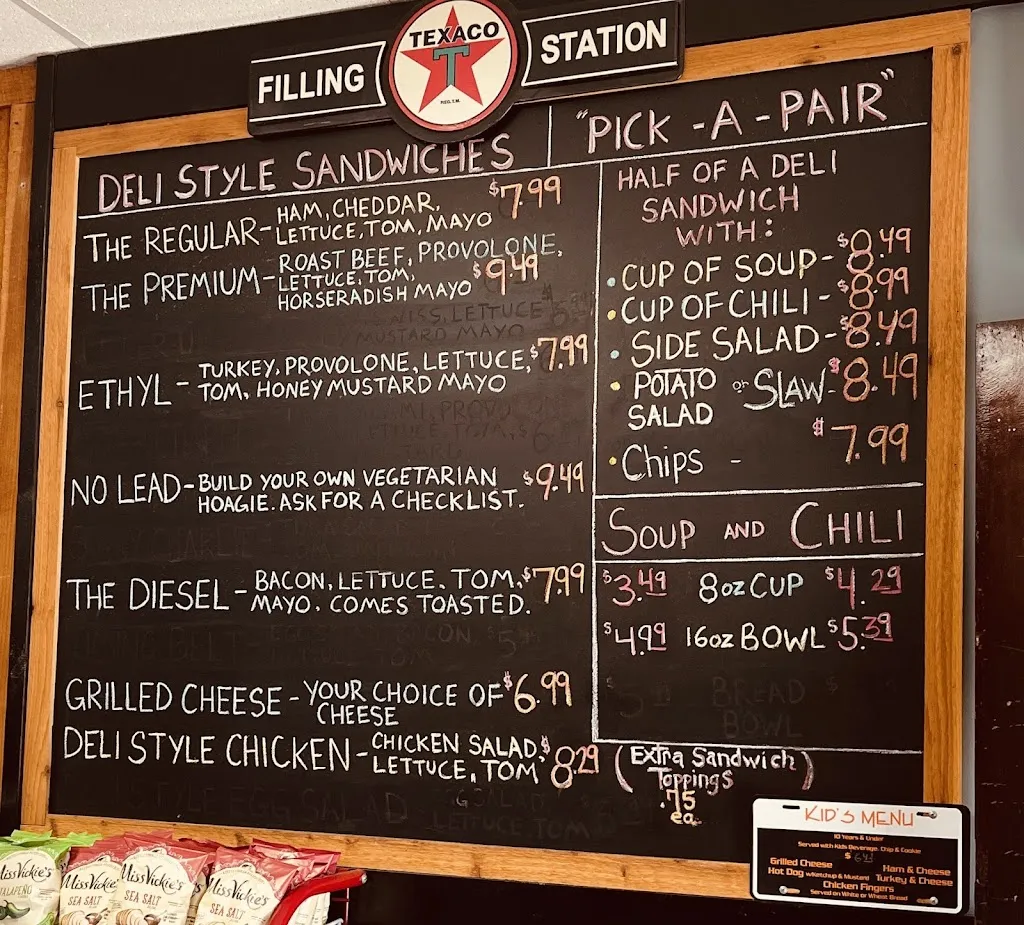 FILLING
TEXACO
T
REG. T.M.
STATION
DELI STYLE SANDWICHES
THE REGULAR - HAM, CHEDDAR, $7.99
LETTUCE, TOM, MAYO
THE PREMIUM - ROAST BEEF, PROVOLONE,
LETTUCE, TOM, $9.49
HORSERADISH MAYO
ETHYL - TURKEY, PROVOLONE, LETTUCE, $7.99
TOM, HONEY MUSTARD MAYO
NO LEAD - BUILD YOUR OWN VEGETARIAN $9.49
HOAGIE. ASK FOR A CHECKLIST.
THE DIESEL - BACON, LETTUCE. TOM, $7.99
MAYO. COMES TOASTED.
GRILLED CHEESE - YOUR CHOICE OF $6.99
CHEESE
DELI STYLE CHICKEN - CHICKEN SALAD, $8.29
LETTUCE, TOM
"PICK-A-PAIR"
HALF OF A DELI
SANDWICH
WITH:
• CUP OF SOUP - $8.49
• CUP OF CHILI - $8.99
• SIDE SALAD - $8.49
• POTATO or SLAW - $8.49
SALAD
• Chips - $7.99
SOUP AND CHILI
$3.49 8oz CUP $4.29
$4.99 16oz BOWL $5.39
BREAD
BOWL
(Extra Sandwich
Toppings)
.75
ea.
KID'S MENU
10 Years & Under
Served with Kids Beverage, Chip & Cookie
Grilled Cheese Ham & Cheese
Hot Dog w/Ketchup & Mustard Turkey & Cheese
Chicken Fingers
Served on White or Wheat Bread
JALAPEÑO
MissVickie's
SEA SALT
MissVickie's
SEA SALT
MissVickie's
SEA SALT